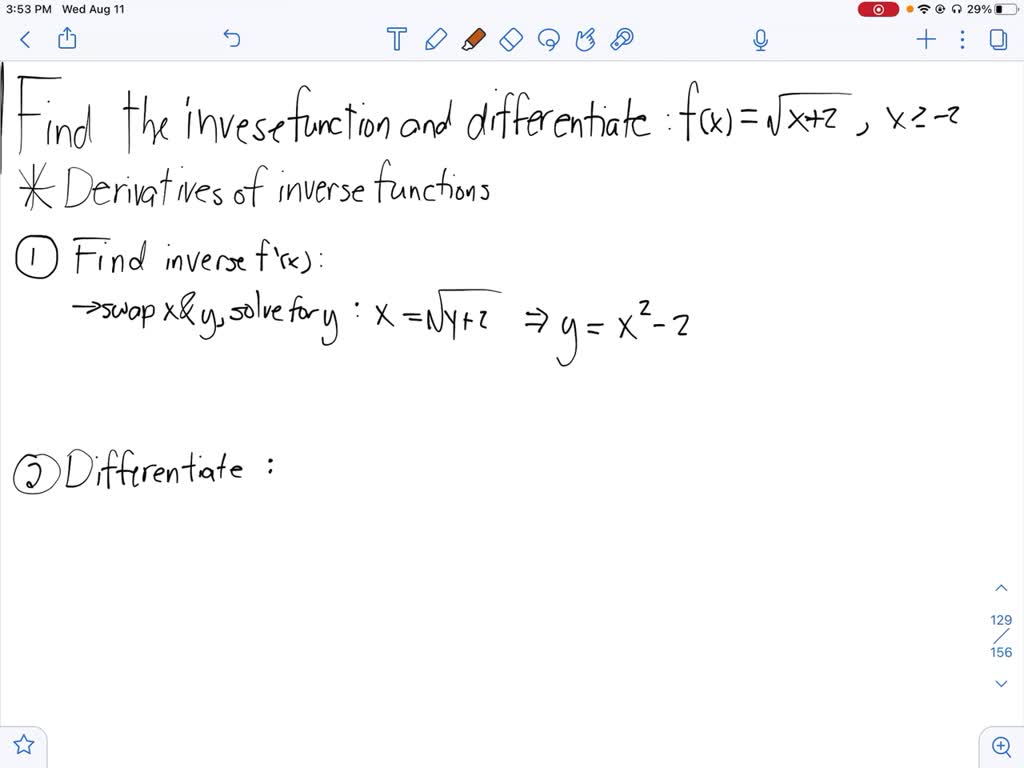 3:53 PM Wed Aug 11
29%
T
Find the invese function and differentiate: f(x) = √x+2, x ≥ -2
* Derivatives of inverse functions
① Find inverse f'(x):
→ swap x & y, solve for y: x = √y+2 ⇒ y = x² - 2
② Differentiate:
129
/
156